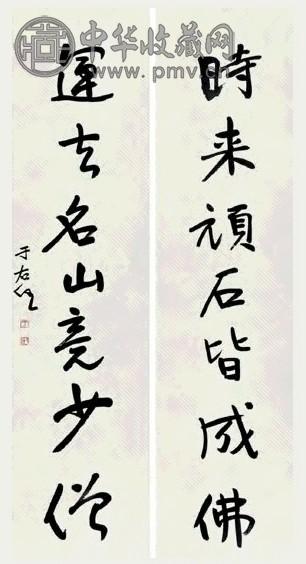 中华收藏网
www.pmv.cn
時来頑石皆成佛
運去名山竟少僧
于右任